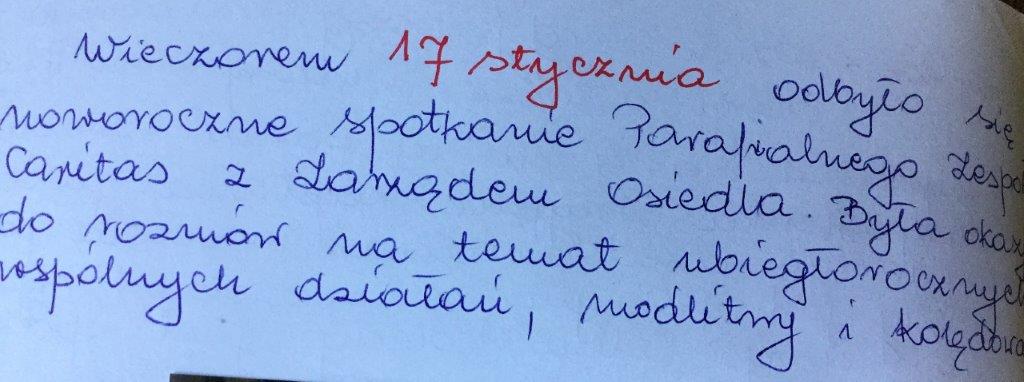 Wieczorem 17 stycznia odbyło się
noworoczne spotkanie Parafialnego Zespo
Caritas z Zarządem Osiedla. Była okaz
do rozmów na temat ubiegłorocznych
wspólnych działań, modlitwy i kolędowa